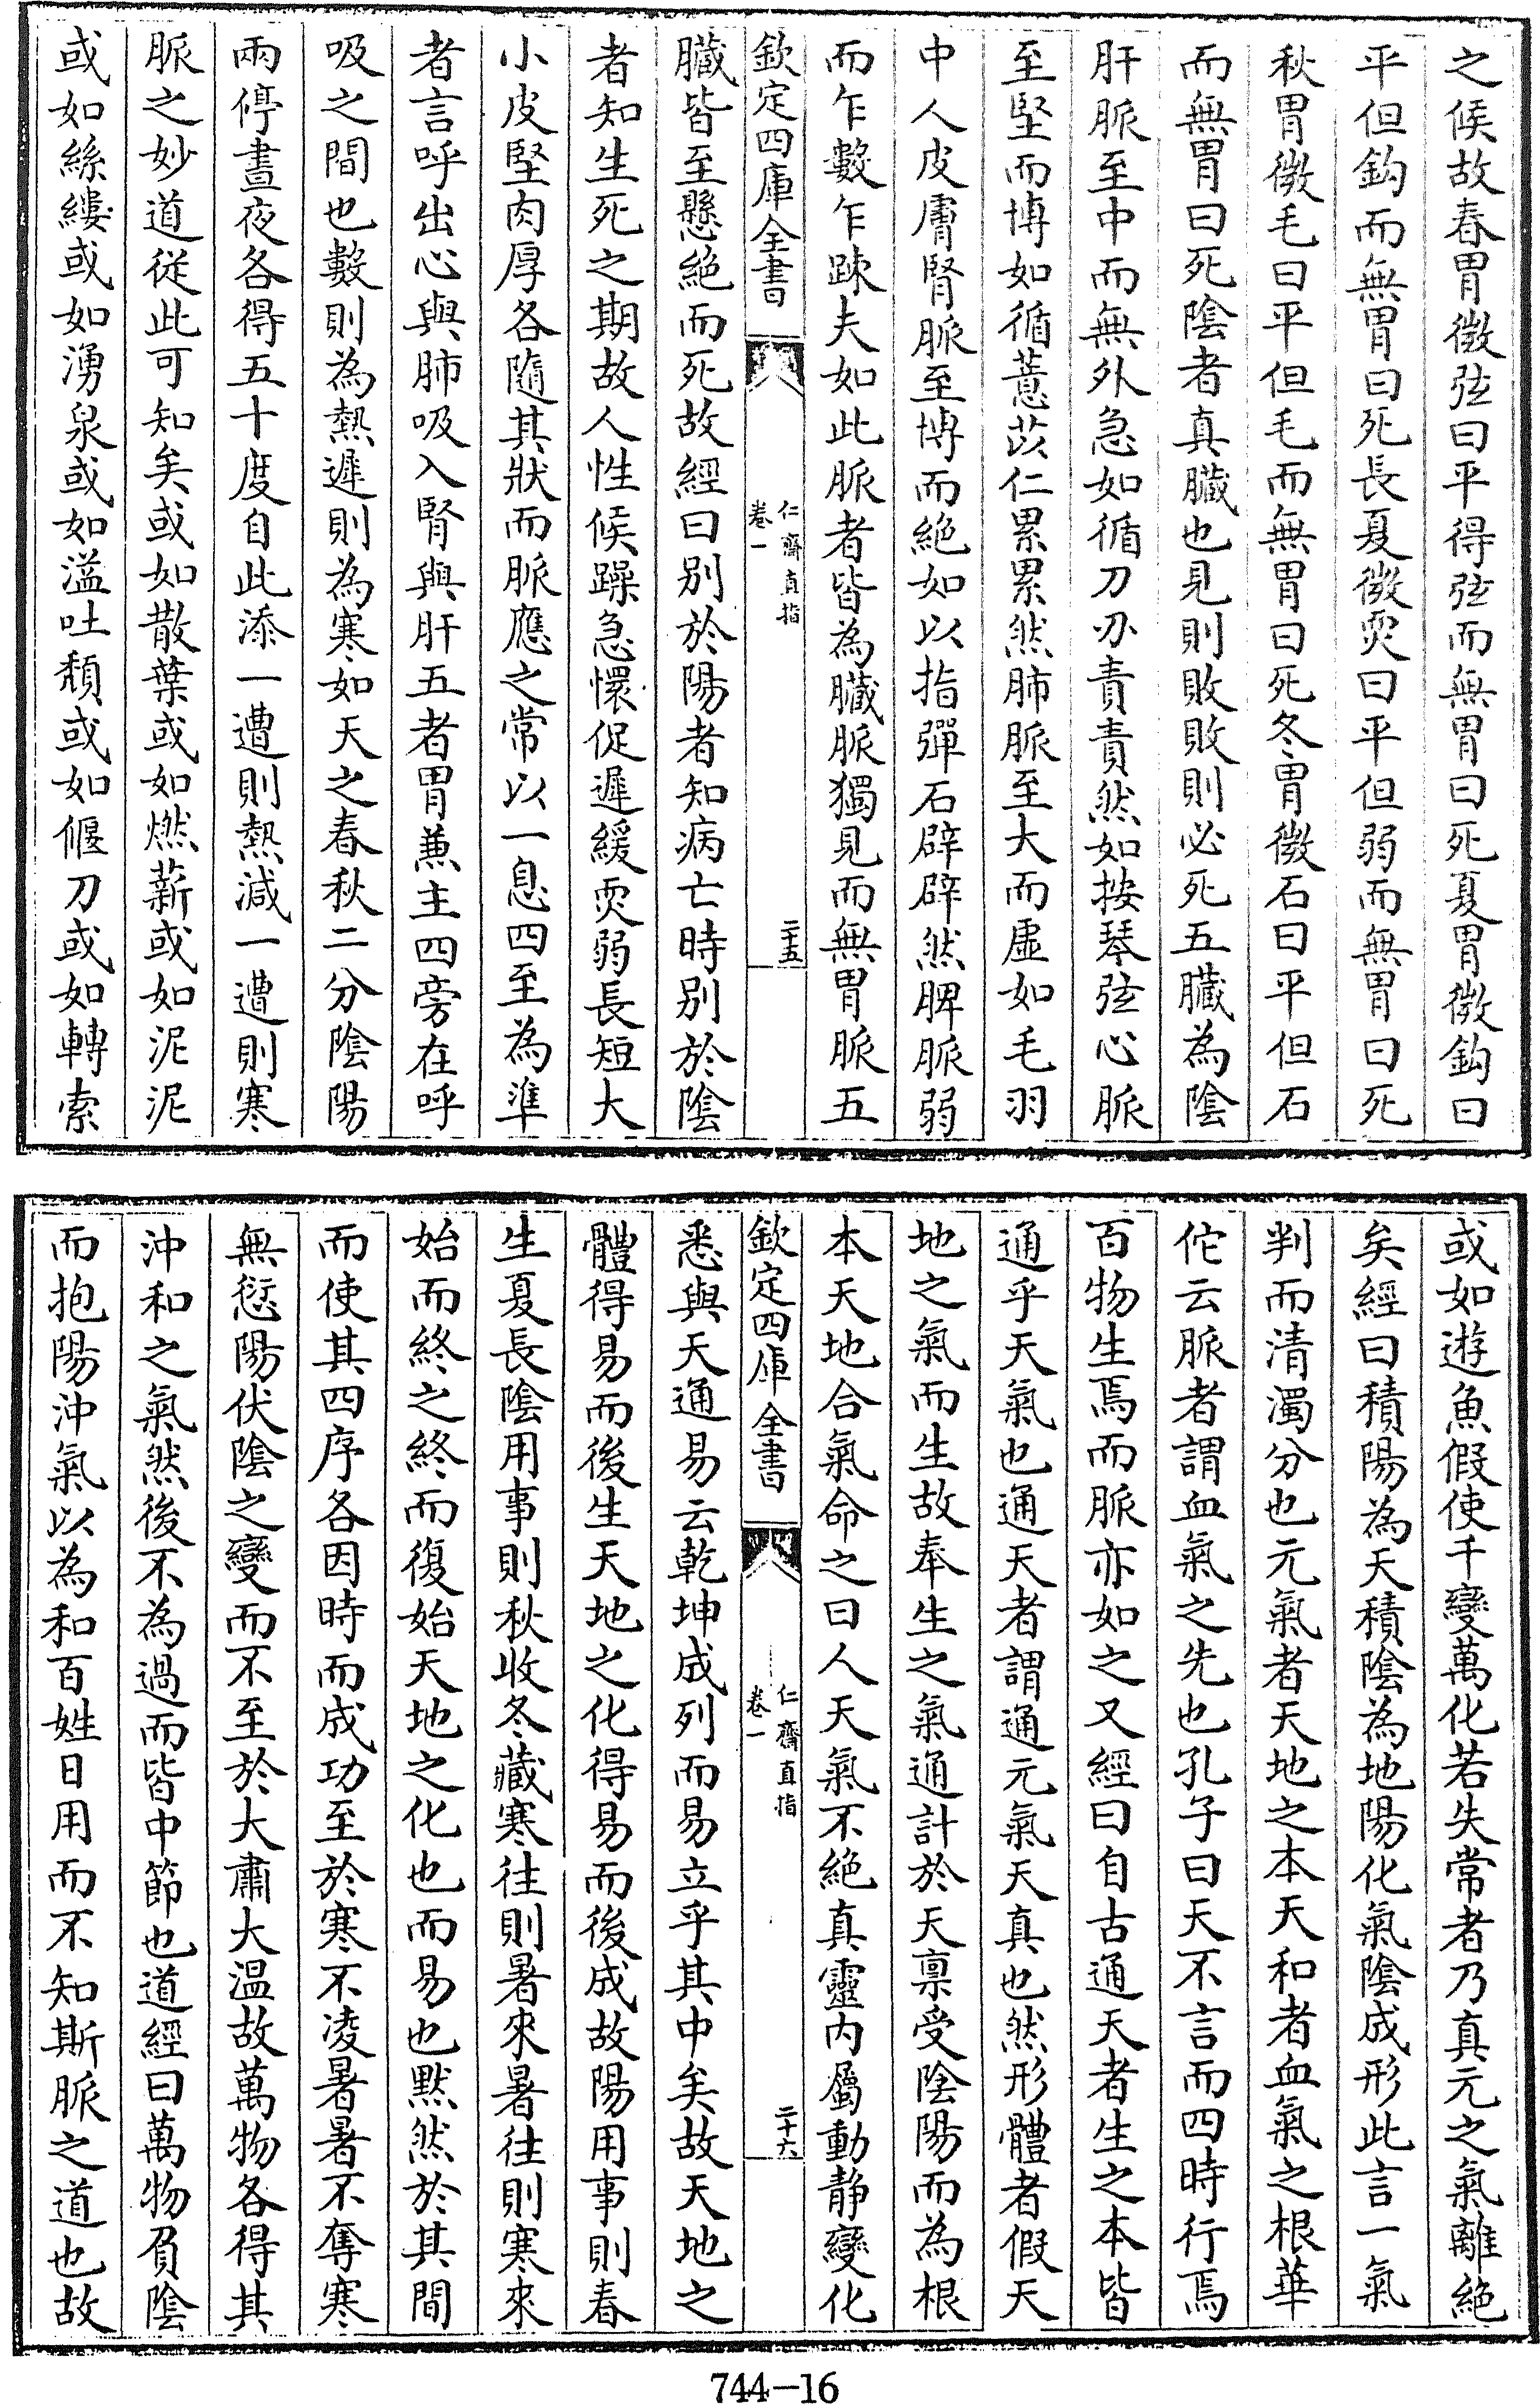 之候故春胃微弦曰平得弦而無胃曰死夏胃微鈎曰
平但鈎而無胃曰死長夏微耎曰平但弱而無胃曰死
秋胃微毛曰平但毛而無胃曰死冬胃微石曰平但石
而無胃曰死陰者真臟也見則敗敗則必死五臟為陰
肝脈至中而無外急如循刀刃責責然如按琴弦心脈
至堅而博如循薏苡仁累累然肺脈至大而虛如毛羽
中人皮膚腎脈至博而絶如以指彈石辟辟然脾脈弱
而乍數乍踈夫如此脈者皆為臟脈獨見而無胃脈五
欽定四庫全書
仁齋直指
卷一
二十五
臟皆至懸絶而死故經曰别於陽者知病亡時别於陰
者知生死之期故人性候躁急懷促遲緩耎弱長短大
小皮堅肉厚各隨其狀而脈應之常以一息四至為準
者言呼出心與肺吸入腎與肝五者胃兼主四旁在呼
吸之間也數則為熱遲則為寒如天之春秋二分陰陽
兩停晝夜各得五十度自此添一遭則熱減一遭則寒
脈之妙道從此可知矣或如散葉或如燃薪或如泥泥
或如絲縷或如湧泉或如溢吐頹或如偃刀或如轉索
或如遊魚假使千變萬化若失常者乃真元之氣離絶
矣經曰積陽為天積陰為地陽化氣陰成形此言一氣
判而清濁分也元氣者天地之本天和者血氣之根華
佗云脈者謂血氣之先也孔子曰天不言而四時行焉
百物生焉而脈亦如之又經曰自古通天者生之本皆
通乎天氣也通天者謂通元氣天真也然形體者假天
地之氣而生故奉生之氣通計於天禀受陰陽而為根
本天地合氣命之曰人天氣不絶真靈内屬動静變化
欽定四庫全書
仁齋直指
卷一
二十六
悉與天通易云乾坤成列而易立乎其中矣故天地之
體得易而後生天地之化得易而後成故陽用事則春
生夏長陰用事則秋收冬藏寒往則暑來暑往則寒來
始而終之終而復始天地之化也而易也黙然於其間
而使其四序各因時而成功至於寒不凌暑暑不奪寒
無愆陽伏陰之變而不至於大肅大温故萬物各得其
沖和之氣然後不為過而皆中節也道經曰萬物負陰
而抱陽沖氣以為和百姓日用而不知斯脈之道也故
744-16